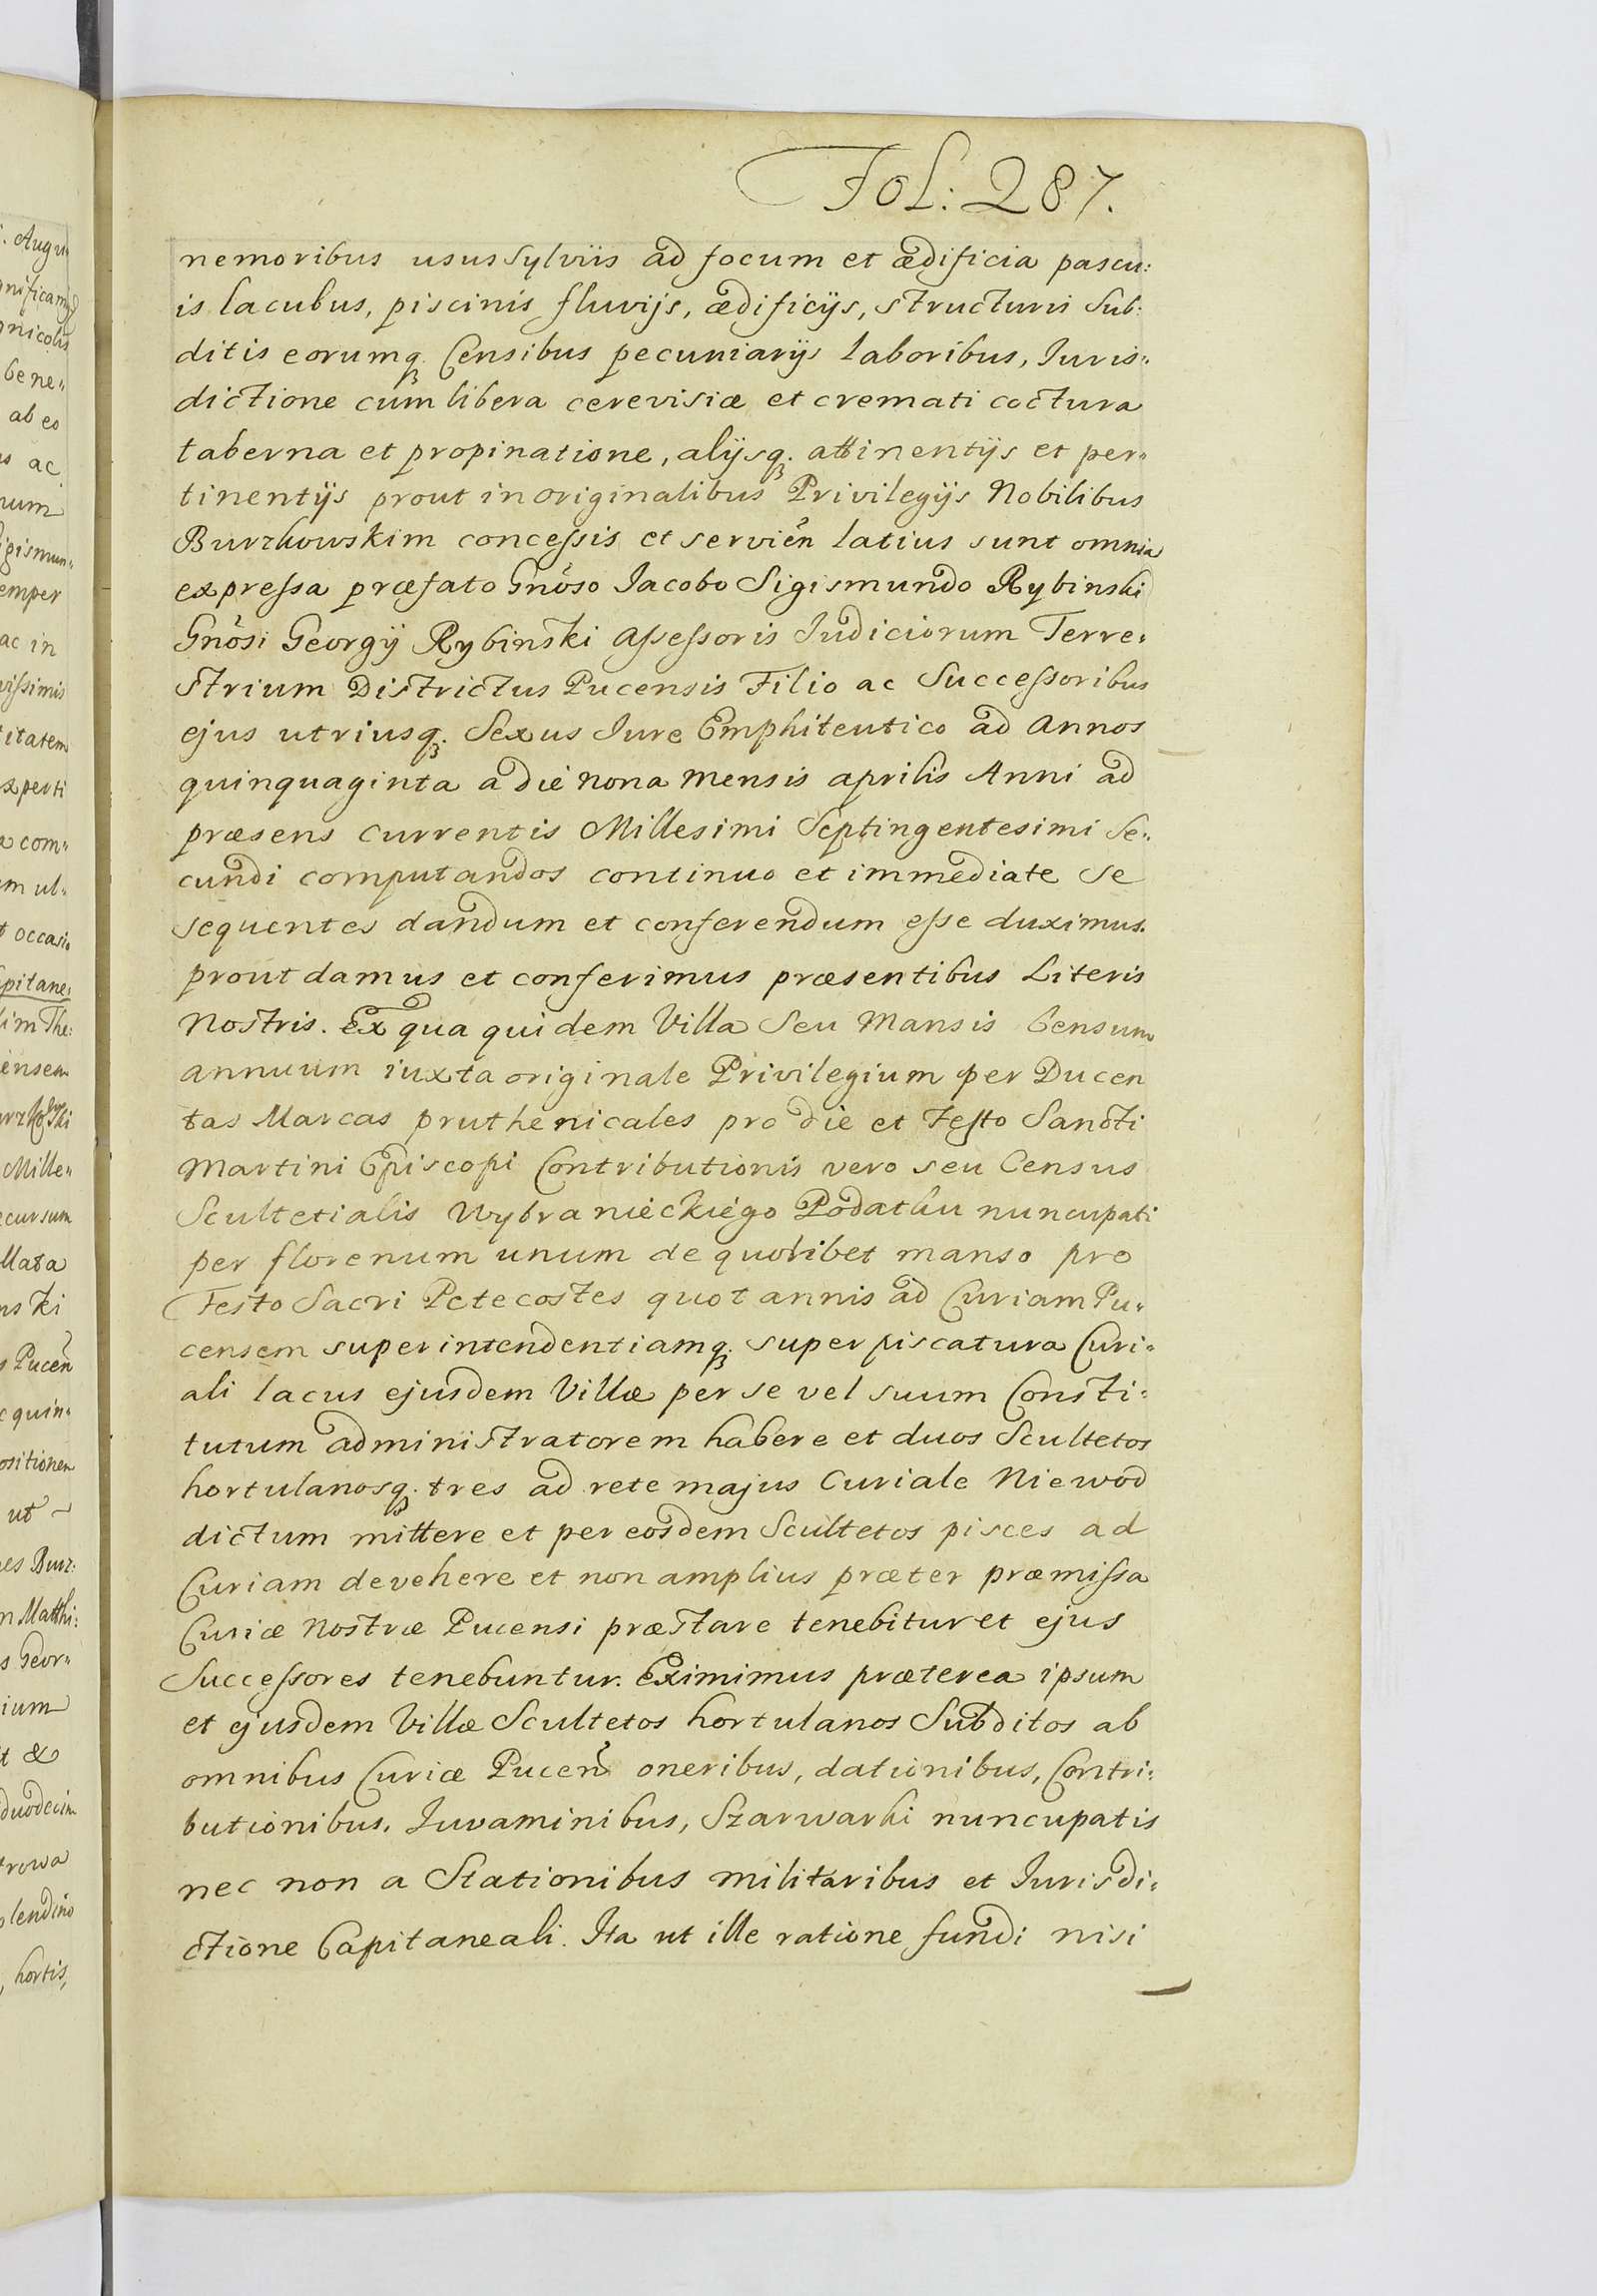 Fol: 287.
nemoribus usus Sylviis ad focum et ædificia pascu:
is lacubus, piscinis fluvijs, ædificijs, structuris Sub:
ditis eorumqꝫ Censibus pecuniarijs laboribus, Iuris:
dictione cum libera cerevisiæ et cremati coctura
taberna et propinatione, alijsqꝫ. attinentijs et per:
tinentijs prout in originalibus Privilegijs Nobilibus
Burzkowskim concessis et servien̄ latius sunt omnia
expressa præfato Gnōso Iacobo Sigismundo Rybinski
Gnōsi Georgij Rybinski Assessoris Iudiciorum Terre:
strium Districtus Pucensis Filio ac Successoribus
ejus utriusqꝫ. Sexus Iure Emphiteutico ad Annos
quinquaginta a die nona Mensis aprilis Anni ad
præsens currentis Millesimi Septingentesimi Se:
cundi computandos continuo et immediate se
sequentes dandum et conferendum esse duximus.
prout damus et conferimus præsentibus Literis
Nostris. Ex qua quidem Villa Seu Mansis Censum
annuum iuxta originale Privilegium per Ducen
tas Marcas pruthenicales pro die et Festo Sancti
Martini Episcopi Contributionis vero seu Census
Scultetialis Wybranieckiego Podatku nuncupati
per florenum unum de quolibet manso pro
Festo Sacri Petecostes quot annis ad Curiam Pu:
censem superintendentiamqꝫ. super piscatura Curi:
ali lacus ejusdem Villæ per se vel suum Consti:
tutum administratorem habere et duos Scultetos
hortulanosqꝫ. tres ad rete majus Curiale Niewod
dictum mittere et per eosdem Scultetos pisces ad
Curiam devehere et non amplius præter præmissa
Curiæ Nostræ Pucensi præstare tenebitur et ejus
Successores tenebuntur. Eximimus præterea ipsum
et ejusdem Villæ Scultetos hortulanos Subditos ab
omnibus Curiæ Pucen̄ oneribus, dationibus, Contri:
butionibus, Iuvaminibus, Szarwarki nuncupatis
nec non a Stationibus militaribus et Iurisdi:
ctione Capitaneali. Ita ut ille ratione fundi nisi